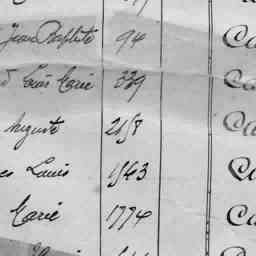 Jean Baptiste 94 Ca
Louis Marie 339 Ca
Auguste 2658 Ca
Louis 1543 Ca
Marie 1774 Ca